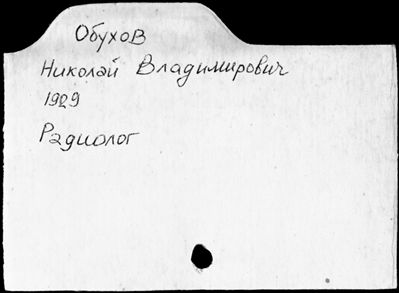 Обухов
Николай Владимирович
1929
Радиолог